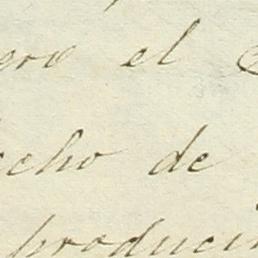 ero el
echo de
produci